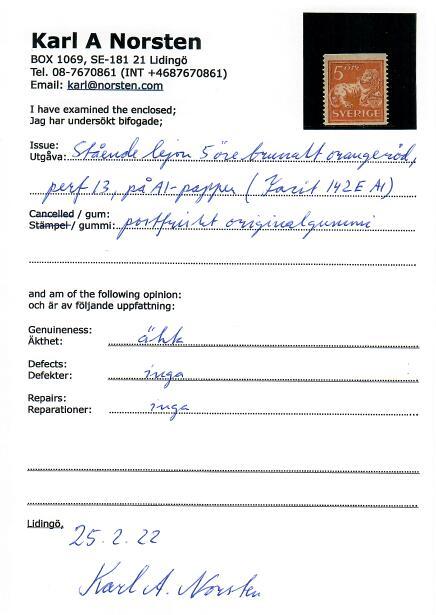 Karl A Norsten
BOX 1069, SE-181 21 Lidingö
Tel. 08-7670861 (INT +4687670861)
Email: karl@norsten.com
5 ÖRE
SVERIGE
I have examined the enclosed;
Jag har undersökt bifogade;
Issue:
Utgåva: Stående lejon 5 öre brunatt orangeröd,
perf 13, på A1-papper (Facit 142E A1)
Cancelled / gum:
Stämpel / gummi: postfriskt originalgummi
and am of the following opinion:
och är av följande uppfattning:
Genuineness:
Äkthet: äkta
Defects:
Defekter: inga
Repairs:
Reparationer: inga
Lidingö,
25.2.22
Karl A. Norsten